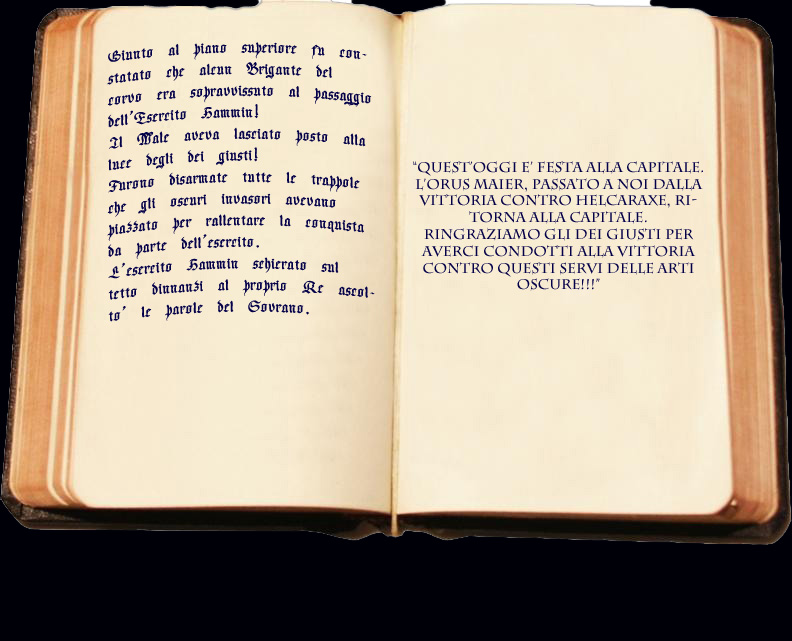 Giunto al piano superiore fu con-
statato che alcun Brigante del
corvo era sopravvissuto al passaggio
dell'Esercito Hammin!
Il Male aveva lasciato posto alla
luce degli dei giusti!
Furono disarmate tutte le trappole
che gli oscuri invasori avevano
piazzato per rallentare la conquista
da parte dell'esercito.
L'esercito Hammin schierato sul
tetto dinnanzi al proprio Re ascol-
to' le parole del Sovrano.
"QUEST'OGGI E' FESTA ALLA CAPITALE.
L'ORUS MAIER, PASSATO A NOI DALLA
VITTORIA CONTRO HELCARAXE, RI-
TORNA ALLA CAPITALE.
RINGRAZIAMO GLI DEI GIUSTI PER
AVERCI CONDOTTI ALLA VITTORIA
CONTRO QUESTI SERVI DELLE ARTI
OSCURE!!!"